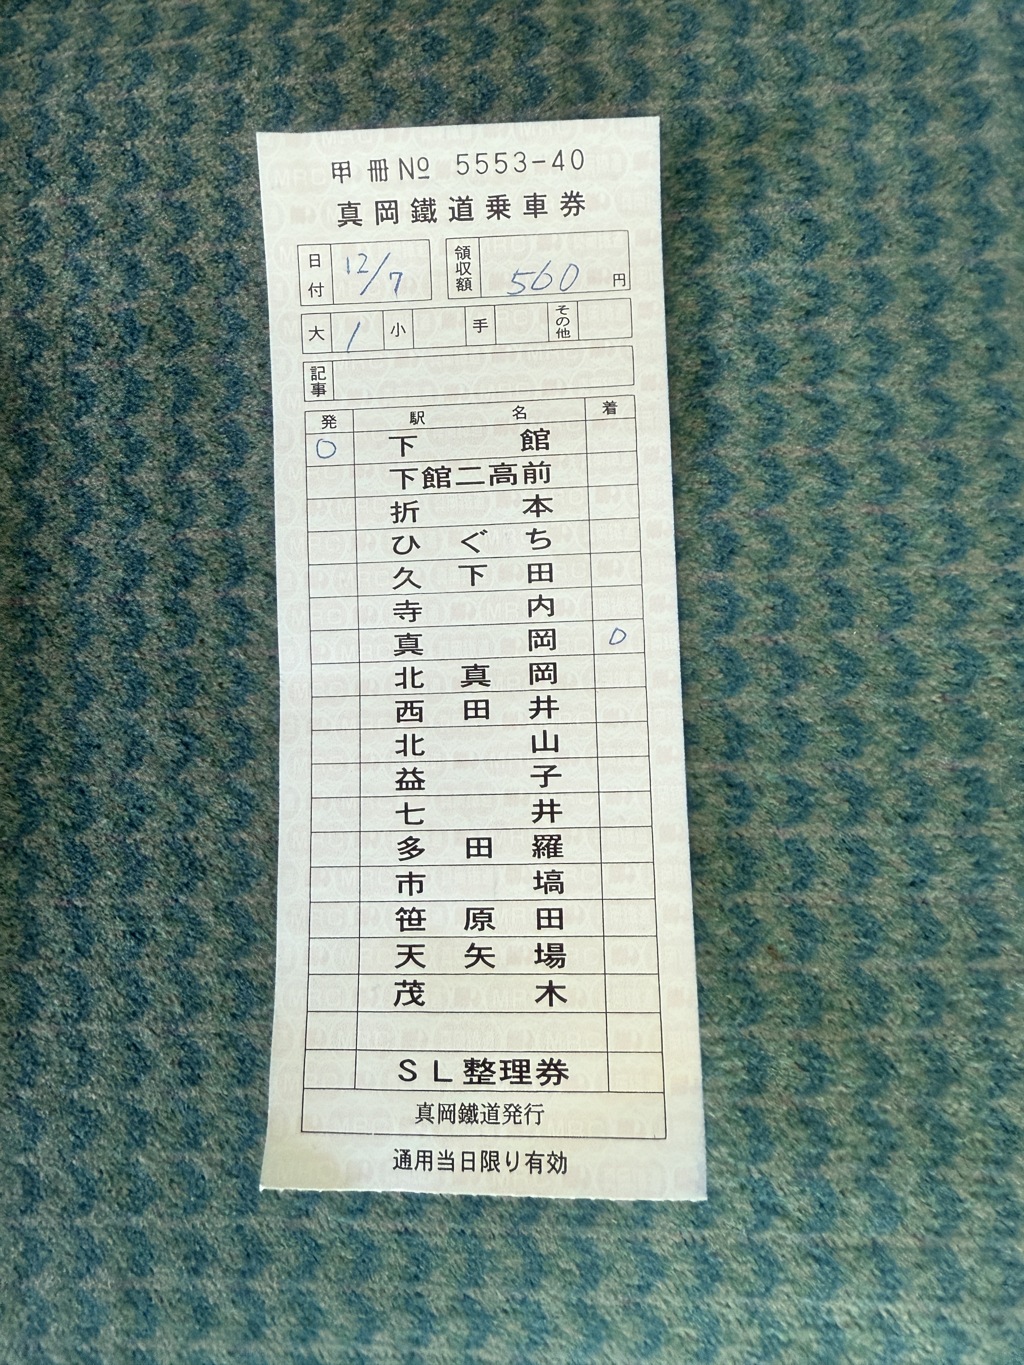 甲 冊 № 5553-40
真岡鐵道乗車券
日付 12/7 領収額 560 円
大 1 小 手 その他
記事
発 駅名 着
○ 下館
下館二高前
折本
ひぐち
久下田
寺内
真岡 ○
北真岡
西田井
北山
益子
七井
多田羅
市塙
笹原田
天矢場
茂木
SL整理券
真岡鐵道発行
通用当日限り有効